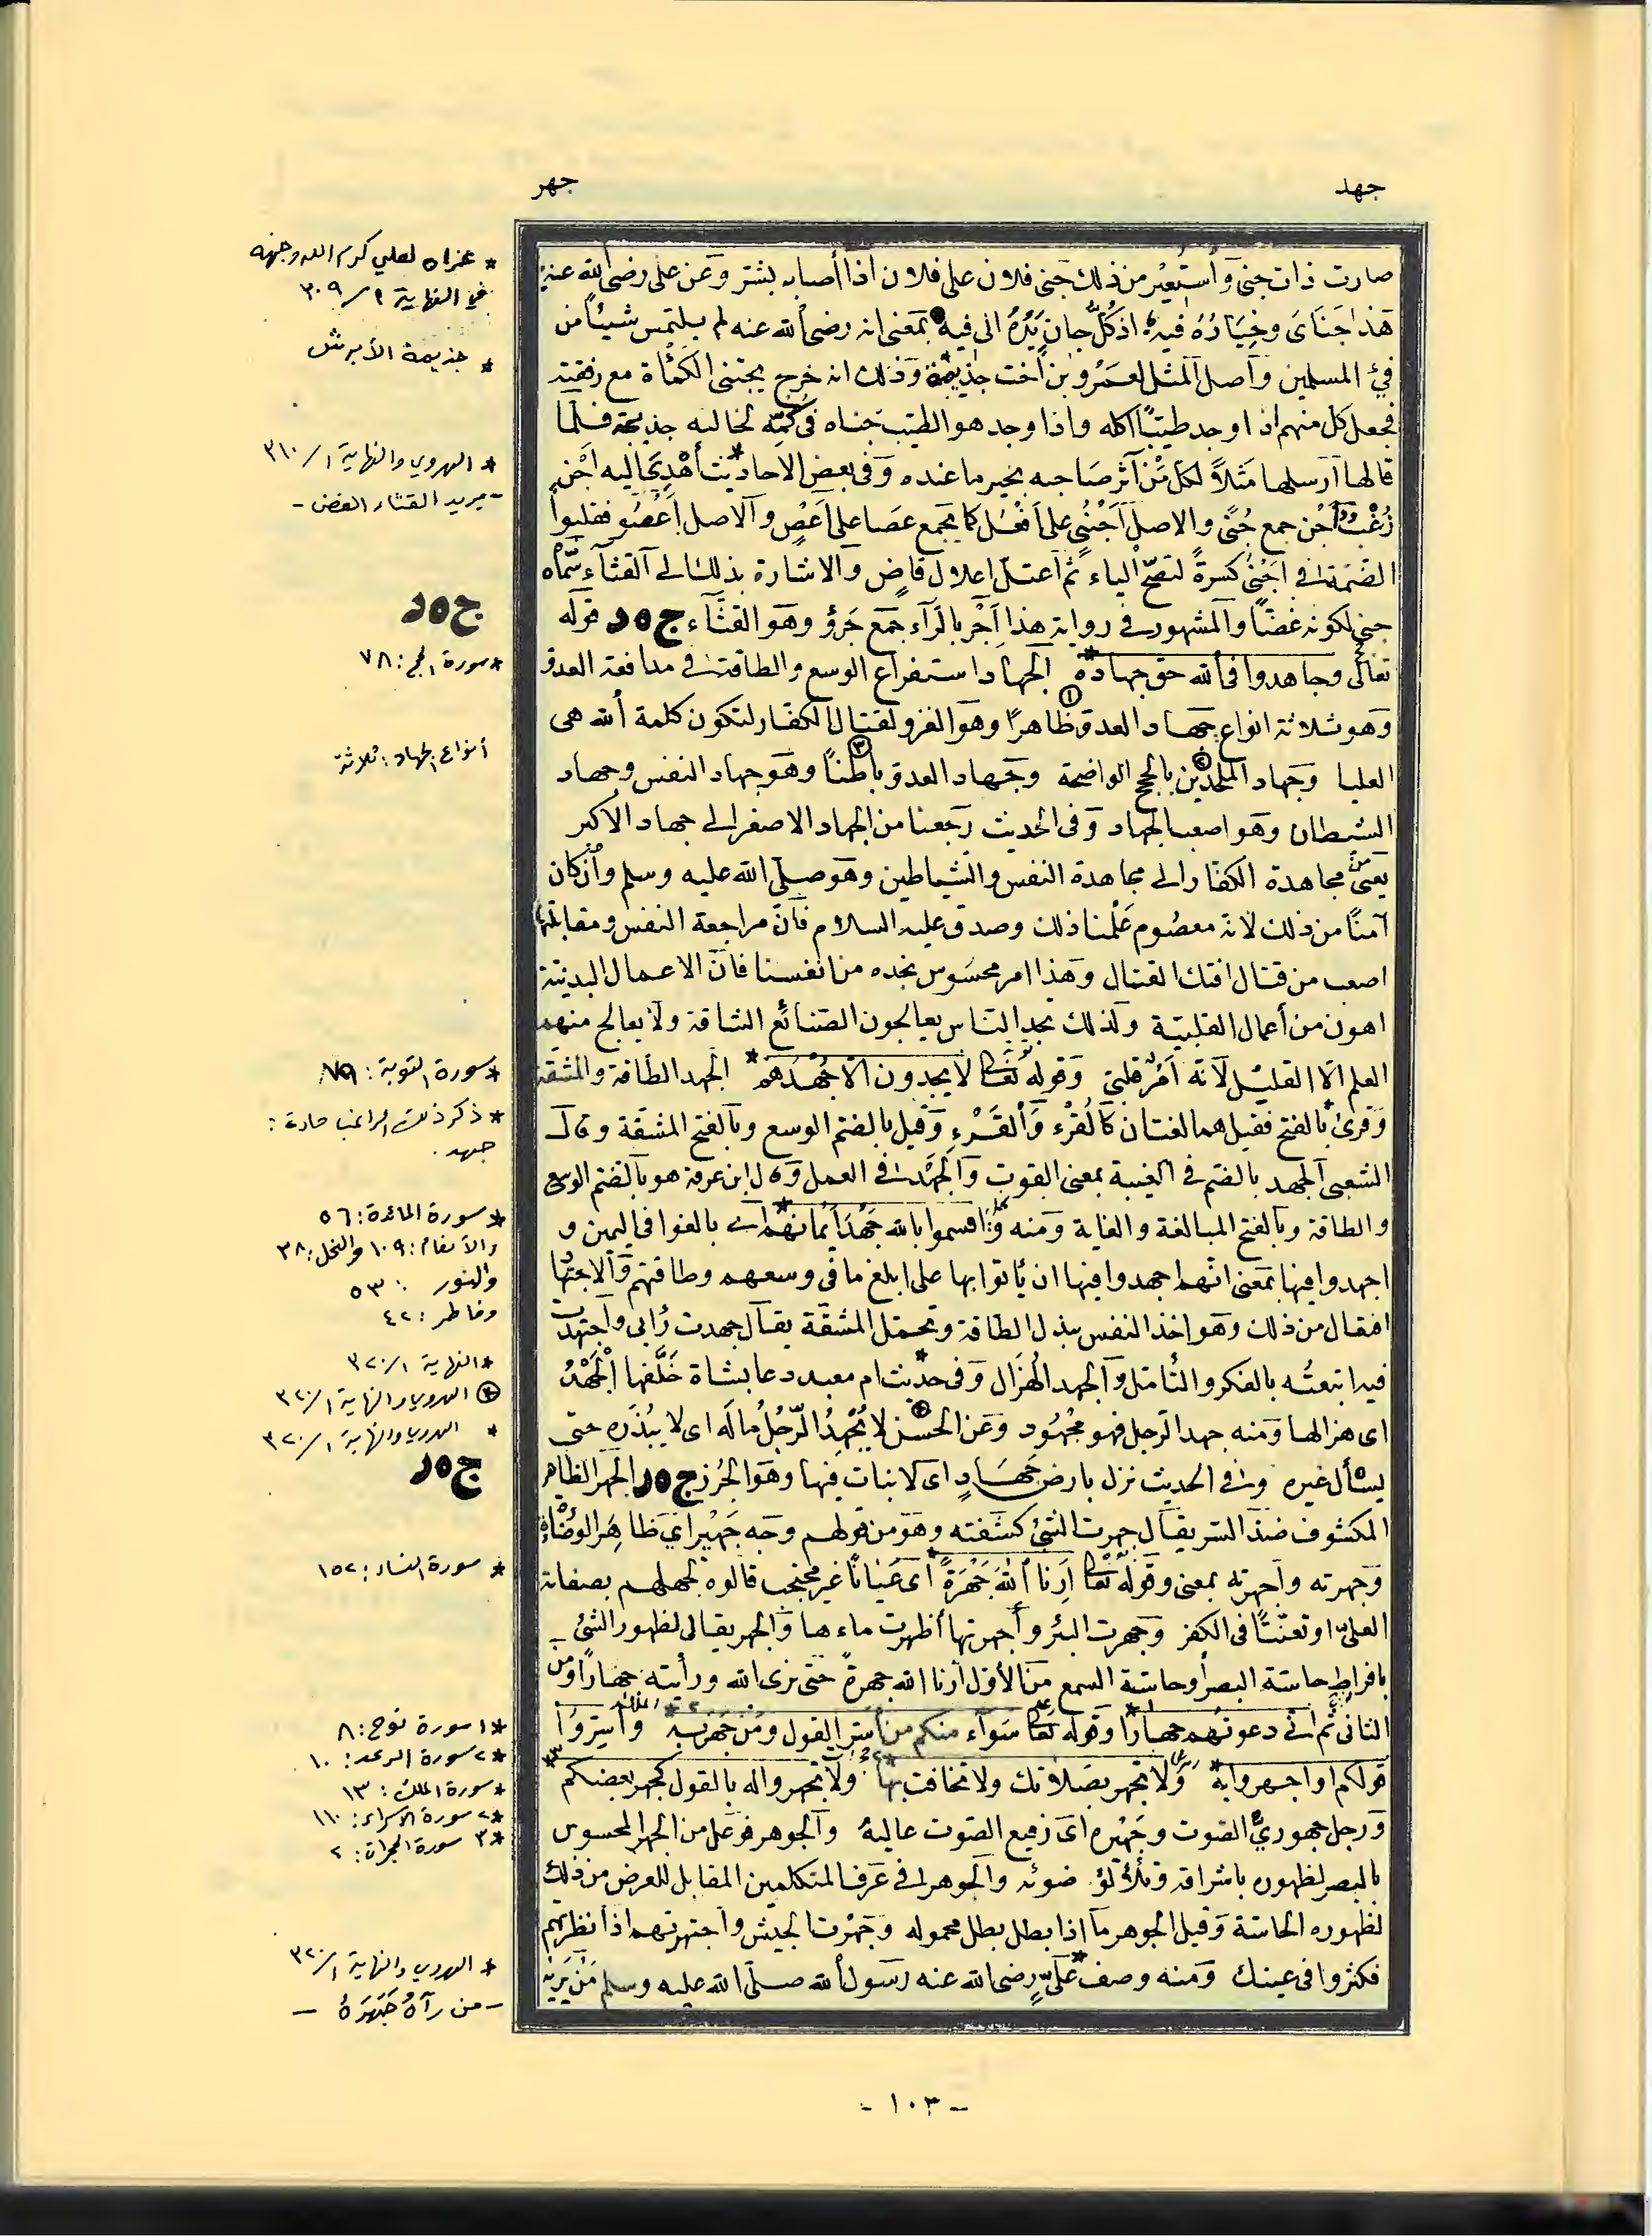 جهد
جهر
صارت ذات جنى وأستعير من ذلك جنى فلان على فلان اذا أصابه بشتر وعن على رضى الله عنه
هذا جَنَاىَ وخِيَارُهُ فيه اذ كُلُّ جانٍ يَدُهُ الى فيه بمعنى انه رضى الله عنه لم يلتمس شيئاً من
فئ المسلمين وأصل المثل لعمرو بن أخت جذيمة وذلك انه خرج يجتنى الكمأة مع رفقته
فجعل كل منهم اذا وجد طيبًا اكله واذا وجد هو الطيب جناه فى كمّه لخاليه جذيمة فلما
قالها أرسلها مثلاً لكل مَنْ آثر صاحبه بخير ما عنده وفى بعض الاحاديث أهدى اليه اجْنٍ
زُغْبٌ أجْن جمع جُنًى والاصل أَجْنُىٌ على أفعُل كما يجمع عصا على أعصٍ والاصل أعصُو فقلبوا
الضمة فى أجنى كسرةً لتصحّ الياء ثم اعتلّ اعلال قاضٍ والاشارة بذلك الى القثّاء سمّاه
جنى لكونه غضّاً والمشهور فى رواية هذا أجْرٍ بالرآء جمع جَرْوٍ وهو القثّآء ج ه د قوله
تعالى وجاهدوا فى الله حق جهاده* الجهاد استفراغ الوسع والطاقة فى مدافعة العدو
وهو ثلاثة انواع جهاد العدو ظاهرًا وهو الغزو لقتال الكفّار لتكون كلمة ألله هى
العليا وجهاد الملحدين بالحجج الواضحة وجهاد العدو باطناً وهو جهاد النفس وجهاد
الشيطان وهو اصعب الجهاد وفى الحديث رجعنا من الجهاد الاصغر الى جهاد الاكبر
يعنى من مجاهدة الكفار الى مجاهدة النفس والشياطين وهو صلى الله عليه وسلم وأن كان
آمنًا من ذلك لانه معصوم علّمنا ذلك وصدق عليه السلام فأنّ مراجعة النفس ومقابلتها
اصعب من قتال افتك القتال وهذا امر محسوس نجده من انفسنا فانّ الاعمال البدنيّة
اهون من أعمال القلبيّة ولذلك نجد الناس يعالجون الصّنائع الشاقة ولا يعالج منهم
العلم الا القليل لانه أمر قلبىّ وقوله تعالى لا يجدون الا جُهْدَهم* الجهد الطاقة والمشقّة
وقرئ بالفتح فقيل هما لغتان كالقُرْء والقَرْءِ وقيل بالضم الوسع وبالفتح المشقة وقال
الشعبى الجهد بالضم فى الغيبة بمعنى القوت والجهد فى العمل وقال ابن عرفة هو بالضم الوسع
والطاقة وبالفتح المبالغة والغاية ومنه واقسموا بالله جَهْدَ أيمانهم* أى بالغوا فى اليمين و
اجهدوا فيها بمعنى انهم اجهدوا فيها ان يأتوا بها على ابلغ ما فى وسعهم وطاقتهم والاجتهاد
افتعال من ذلك وهو اخذ النفس ببذل الطاقة وتحمّل المشقّة يقال جهدت رأيى واجتهدت
فيه اتبعته بالفكر والتأمل والجهد الهُزال وفى حديث ام معبد دعا بشاة خَلَّفها الجَهْدُ
اى هزالها ومنه جهد الرجل فهو مجهُود وعن الحسن لا يُجْهِدُ الرّجُلُ مالَه اى لا يبُذّره حتى
يسأل غيره وفى الحديث نزل بارض جَهَادٍ اى لا نبات فيها وهو الجُرُز ج ه ر الجهر الظاهر
المكشوف ضدّ السر يقال جهرت الشئ كشفته وهو من قولهم وجه جَهيراى ظاهر الوضاءة
وجهرته وأجهرته بمعنى وقوله تعالى أرِنا ألله جَهْرَةً* اى عيانًا غير محتجب قالوه لجهلهم بصفاته
العلى او تعنّتاً فى الكفر وجهرت البئر وأجهرتها أظهرت ماءها والجهر يقال لظهور الشئ
بافراط حاسّة البصر أو حاسّة السمع من الأوّل أرنا الله جهرة حتى نرى الله ورأيته جهاراً ومن
الثانى ثم انى دعوتهم جهارًا وقوله تعالى سوآء منكم من أسر القول ومن جهر به وأسِرّوا
قولكم أو اجهروا به* ولا تجهر بصلاتك ولا تخافت بها* ولا تجهروا له بالقول كجهر بعضكم
ورجل جهورىّ الصّوت وجَهْيره اى رفيع الصّوت عاليهُ والجوهر فوعل من الجهر المحسوس
بالبصر لظهوره باشراقه وتلألؤ ضوئه والجوهر فى عرف المتكلمين المقابل للعرض من ذلك
لظهوره الحاسّة وقيل الجوهر ما اذا بطل بطل محموله وجهرت الجيش واجتهرتهم اذا نظرتهم
فكثروا فى عينك ومنه وصف علىّ رضى الله عنه رسول ألله صلى الله عليه وسلم مَن يَرَيْه
* عزاه لعلي كرم الله وجهه
في النهاية ١/٣٠٩
* جذيمة الأبرش
* الهروي والنهاية ١/٣١٠
- يريد القثاء الغض -
ج ه د
* سورة الحج: ٧٨
أنواع الجهاد: ثلاثة
* سورة التوبة: ٧٩
* ذكر ذلك الراغب مادة:
جهد.
* سورة المائدة: ٥٦
والأنعام: ١٠٩ والنحل: ٣٨
والنور: ٥٣
وفاطر: ٤٢
* النهاية ١/٣٢٠
* الهروي والنهاية ١/٣٢٠
* الهروي والنهاية ١/٣٢٠
ج ه ر
* سورة النساء: ١٥٢
*١ سورة نوح: ٨
*٢ سورة الرعد: ١٠
* سورة الملك: ١٣
*٢ سورة الاسراء: ١١٠
*٣ سورة الحجرات: ٢
* الهروي والنهاية ١/٣٢٠
- من رآهُ جَهَرَهُ -
- ١٠٣ -